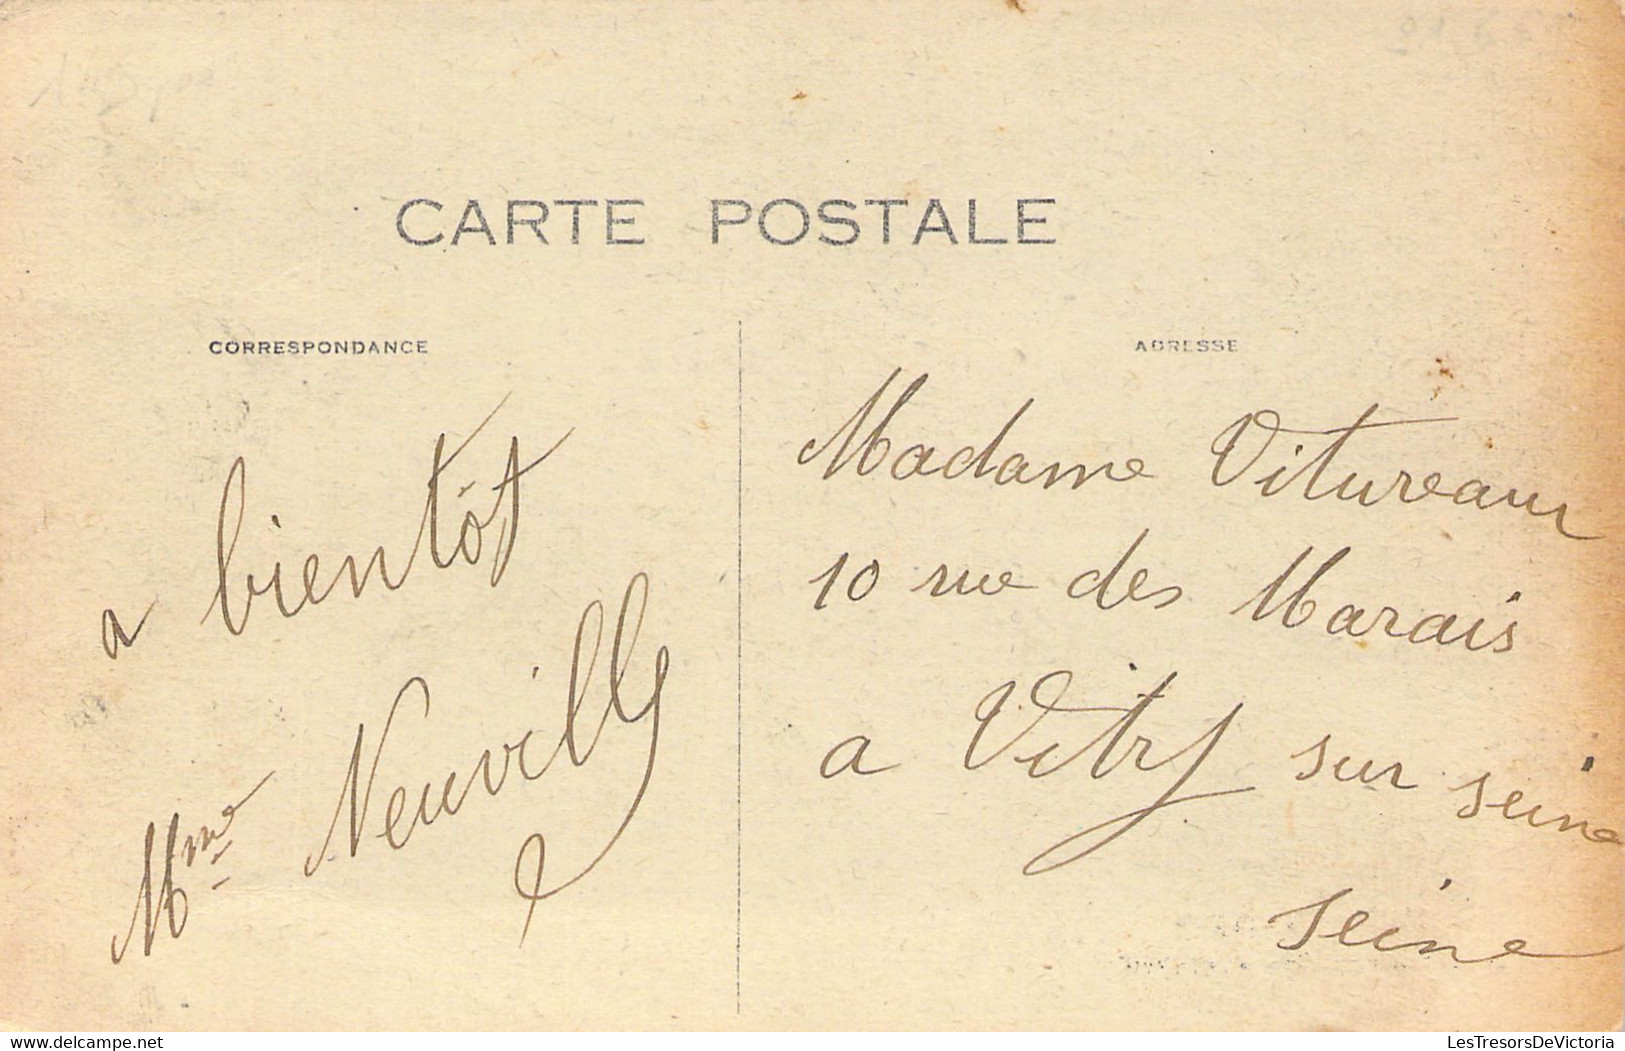 CARTE POSTALE
CORRESPONDANCE
a bientôt
Mme Neuville
ADRESSE
Madame Vitureau
10 rue des Marais
a Vitry sur seine
seine
delcampe.net
LesTresorsDeVictoria